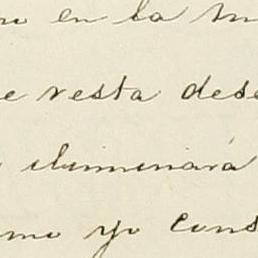 en la
e resta dese
iluminará
mo yo cons